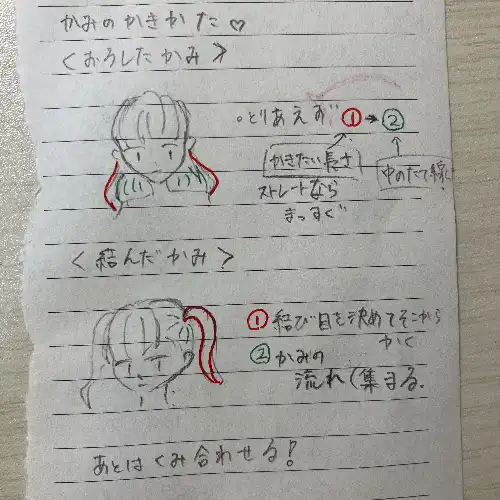 かみのかきかた♡
<おろしたかみ>
・とりあえず①→②
かきたい長さ
ストレートなら
まっすぐ
中のたて線
<結んだかみ>
①結び目を決めてそこから
かく
②かみの
流れ(集まる.
あとはくみ合わせる!